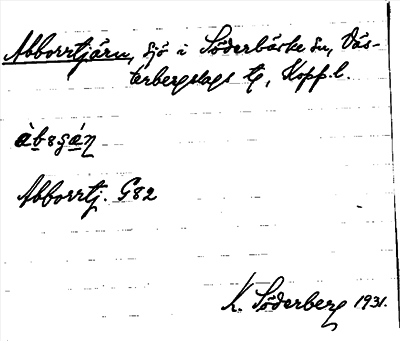 Abborrtjärn, sjö i Söderbärke sn, Väs-
terbergslags tg, Kopp. l.
àbsşáŋ
Abborrtj. G82
K. Söderberg 1931.